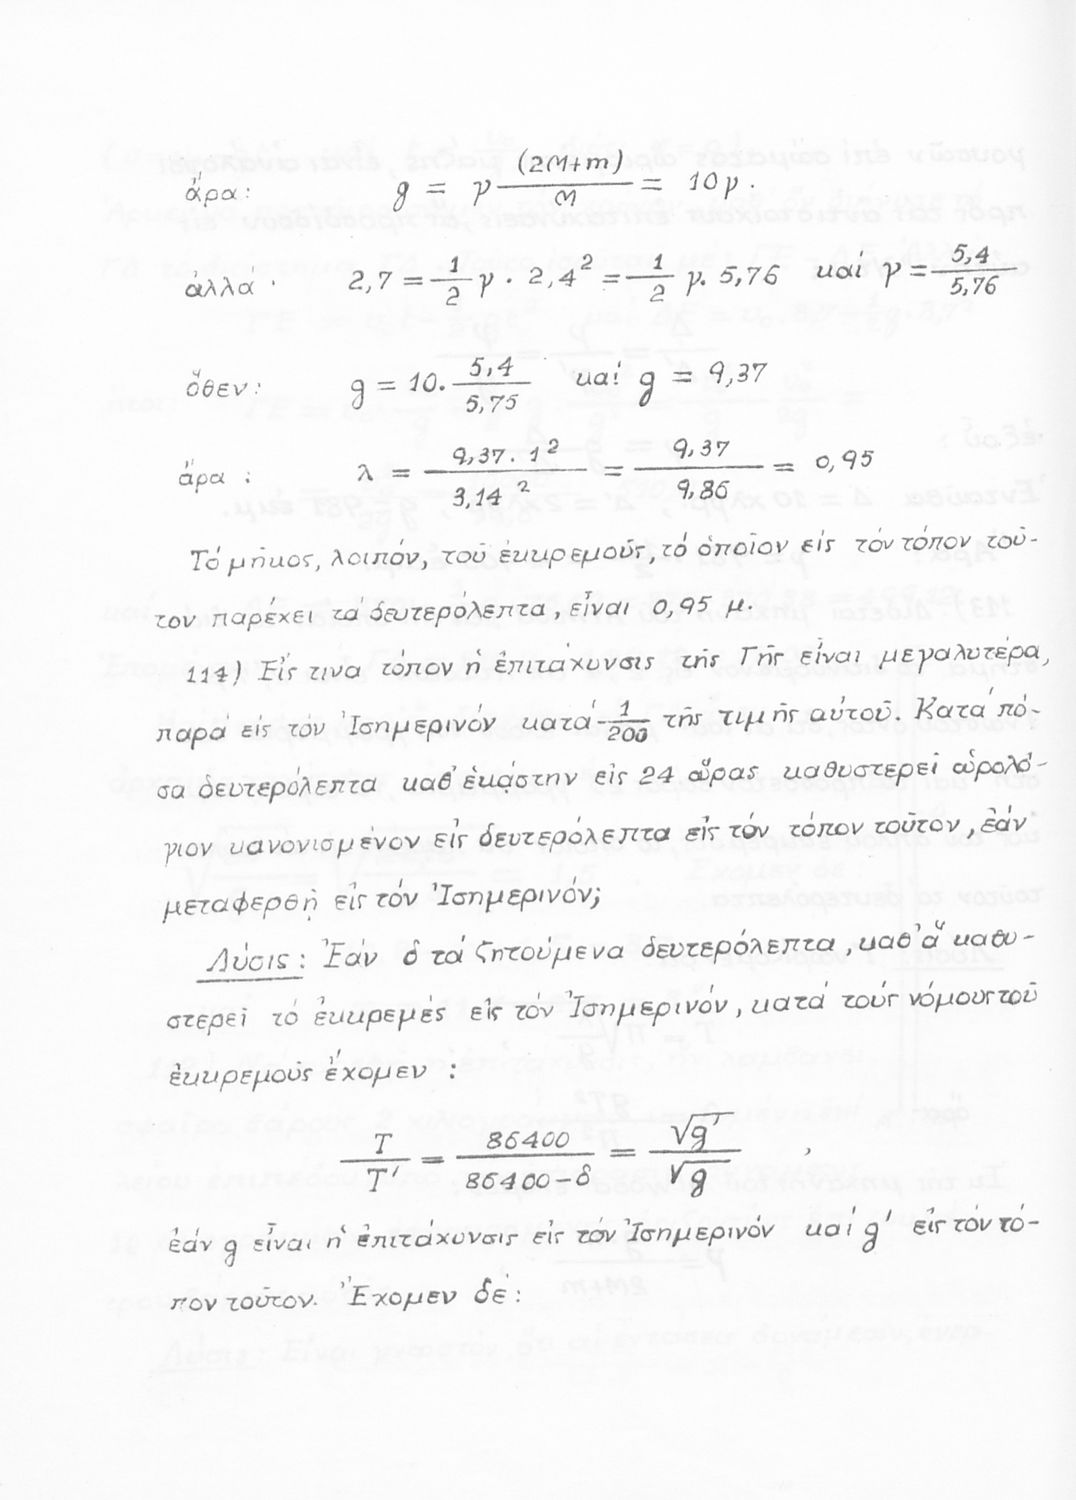 ἄρα: g = γ (2M+m)/M = 10γ.
ἀλλά· 2,7 = 1/2 γ · 2,4² = 1/2 γ. 5,76 καί γ = 5,4/5,76
ὅθεν: g = 10. 5,4/5,75 καί g = 9,37
ἄρα: λ = 9,37. 1²/3,14² = 9,37/9,86 = 0,95
Τό μῆκος, λοιπόν, τοῦ ἐκκρεμοῦς, τό ὁποῖον εἰς τόν τόπον τοῦ-
τον παρέχει τά δευτερόλεπτα, εἶναι 0,95 μ.
114) Εἴς τινα τόπον ἡ ἐπιτάχυνσις τῆς Γῆς εἶναι μεγαλυτέρα,
παρά εἰς τόν Ἰσημερινόν κατά 1/200 τῆς τιμῆς αὐτοῦ. Κατά πό-
σα δευτερόλεπτα καθ' ἑκάστην εἰς 24 ὥρας καθυστερεῖ ὡρολό-
γιον κανονισμένον εἰς δευτερόλεπτα εἰς τόν τόπον τοῦτον, ἐάν
μεταφερθῇ εἰς τόν Ἰσημερινόν;
Λύσις: Ἐάν δ τά ζητούμενα δευτερόλεπτα, καθ' ἅ καθυ-
στερεῖ τό ἐκκρεμές εἰς τόν Ἰσημερινόν, κατά τούς νόμους τοῦ
ἐκκρεμοῦς ἔχομεν :
T/T' = 86400/86400-δ = √g'/√g ,
ἐάν g εἶναι ἡ ἐπιτάχυνσις εἰς τόν Ἰσημερινόν καί g' εἰς τόν τό-
πον τοῦτον. Ἔχομεν δέ: